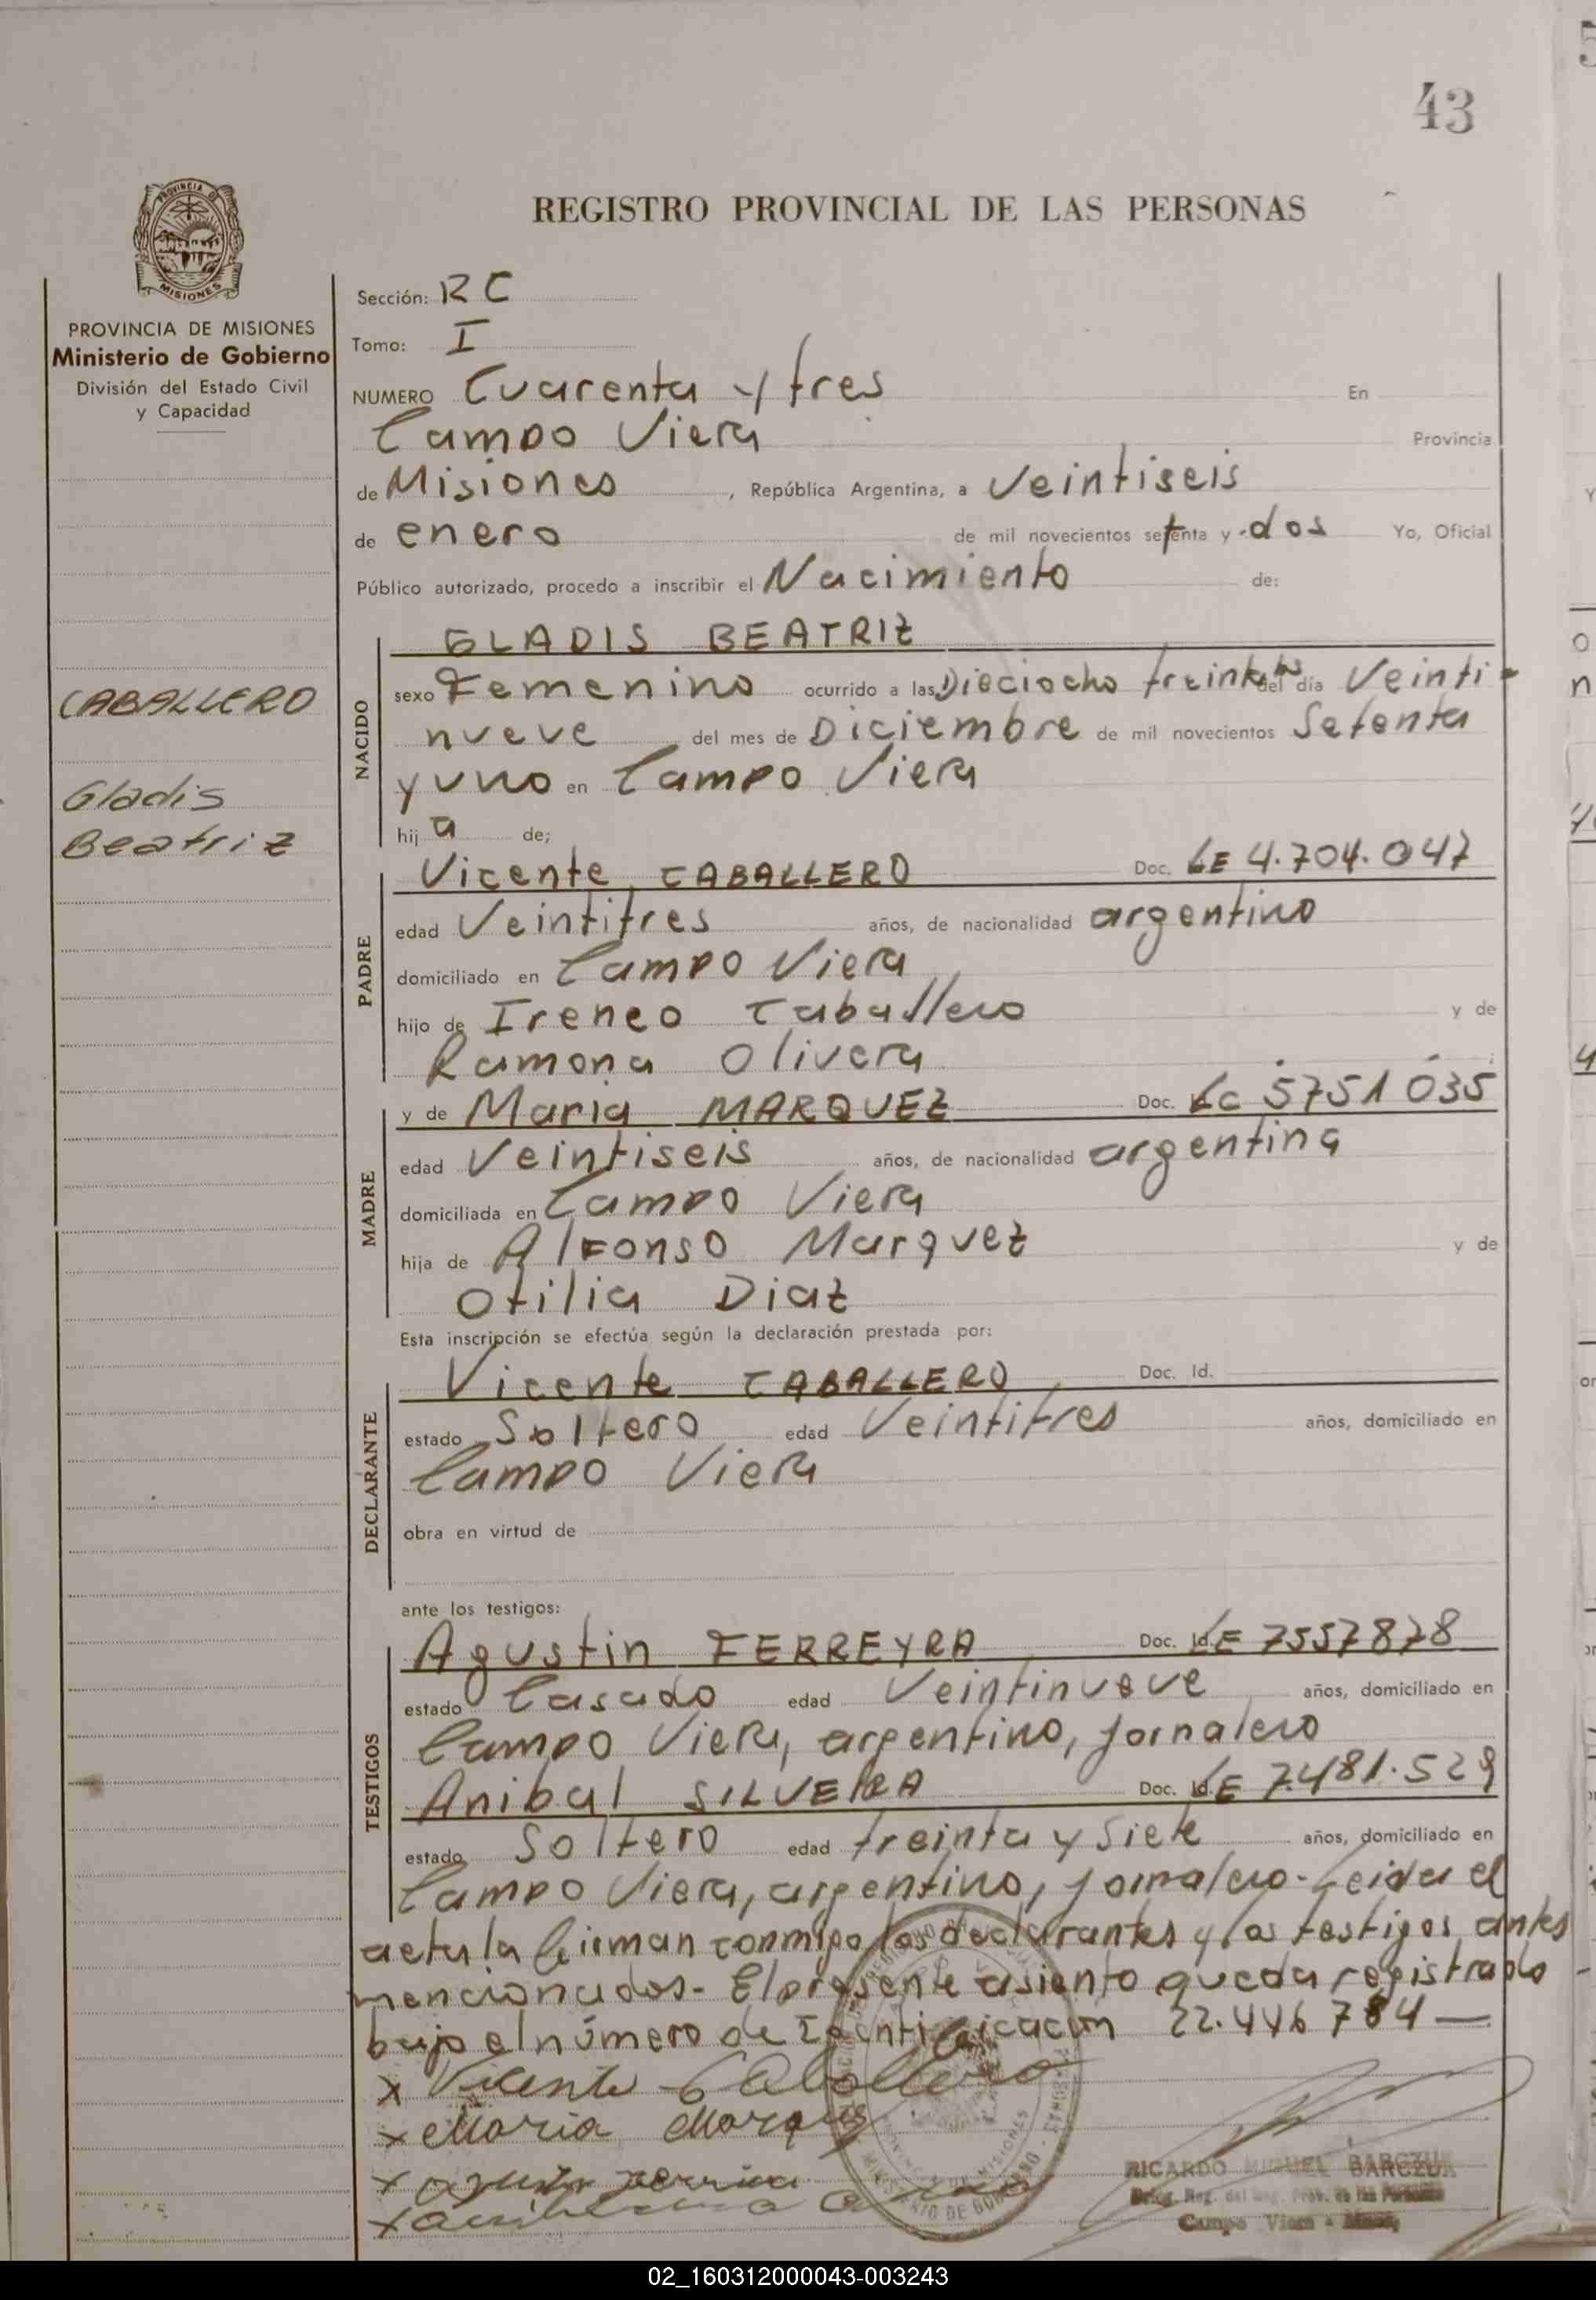 43
REGISTRO PROVINCIAL DE LAS PERSONAS
PROVINCIA DE MISIONES
Ministerio de Gobierno
División del Estado Civil
y Capacidad
CABALLERO
Gladis
Beatriz
Sección: RC
Tomo: I
NUMERO Cuarenta y tres En
Campo Viera Provincia
de Misiones, República Argentina, a Veintiseis
de enero de mil novecientos setenta y dos Yo, Oficial
Público autorizado, procedo a inscribir el Nacimiento de:
NACIDO
GLADIS BEATRIZ
sexo Femenino ocurrido a las Dieciocho treinta hs del día Veinti-
nueve del mes de Diciembre de mil novecientos Setenta
y uno en Campo Viera
hij a de;
PADRE
Vicente CABALLERO Doc. LE 4.704.047
edad Veintitres años, de nacionalidad argentino
domiciliado en Campo Viera
hijo de Ireneo Caballero y de
Ramona Olivera
MADRE
y de Maria MARQUEZ Doc. LC 5751035
edad Veintiseis años, de nacionalidad argentina
domiciliada en Campo Viera
hija de Alfonso Marquez y de
Otilia Diaz
Esta inscripción se efectúa según la declaración prestada por:
DECLARANTE
Vicente CABALLERO Doc. Id.
estado Soltero edad Veintitres años, domiciliado en
Campo Viera
obra en virtud de
ante los testigos:
TESTIGOS
Agustin FERREYRA Doc. Id. LE 7557878
estado Casado edad Veintinueve años, domiciliado en
Campo Viera, argentino, jornalero
Anibal SILVEIRA Doc. Id. LE 7.481.529
estado Soltero edad treinta y siete años, domiciliado en
Campo Viera, argentino, jornalero. Leida el
acta la firman conmigo los declarantes y los testigos antes
mencionados- El presente asiento queda registrado
bajo el número de Identificacion 22.446 784 —
x Vicente Caballero
x Maria Marques
RICARDO MIGUEL BARCZUK
Campo Viera
02_160312000043-003243